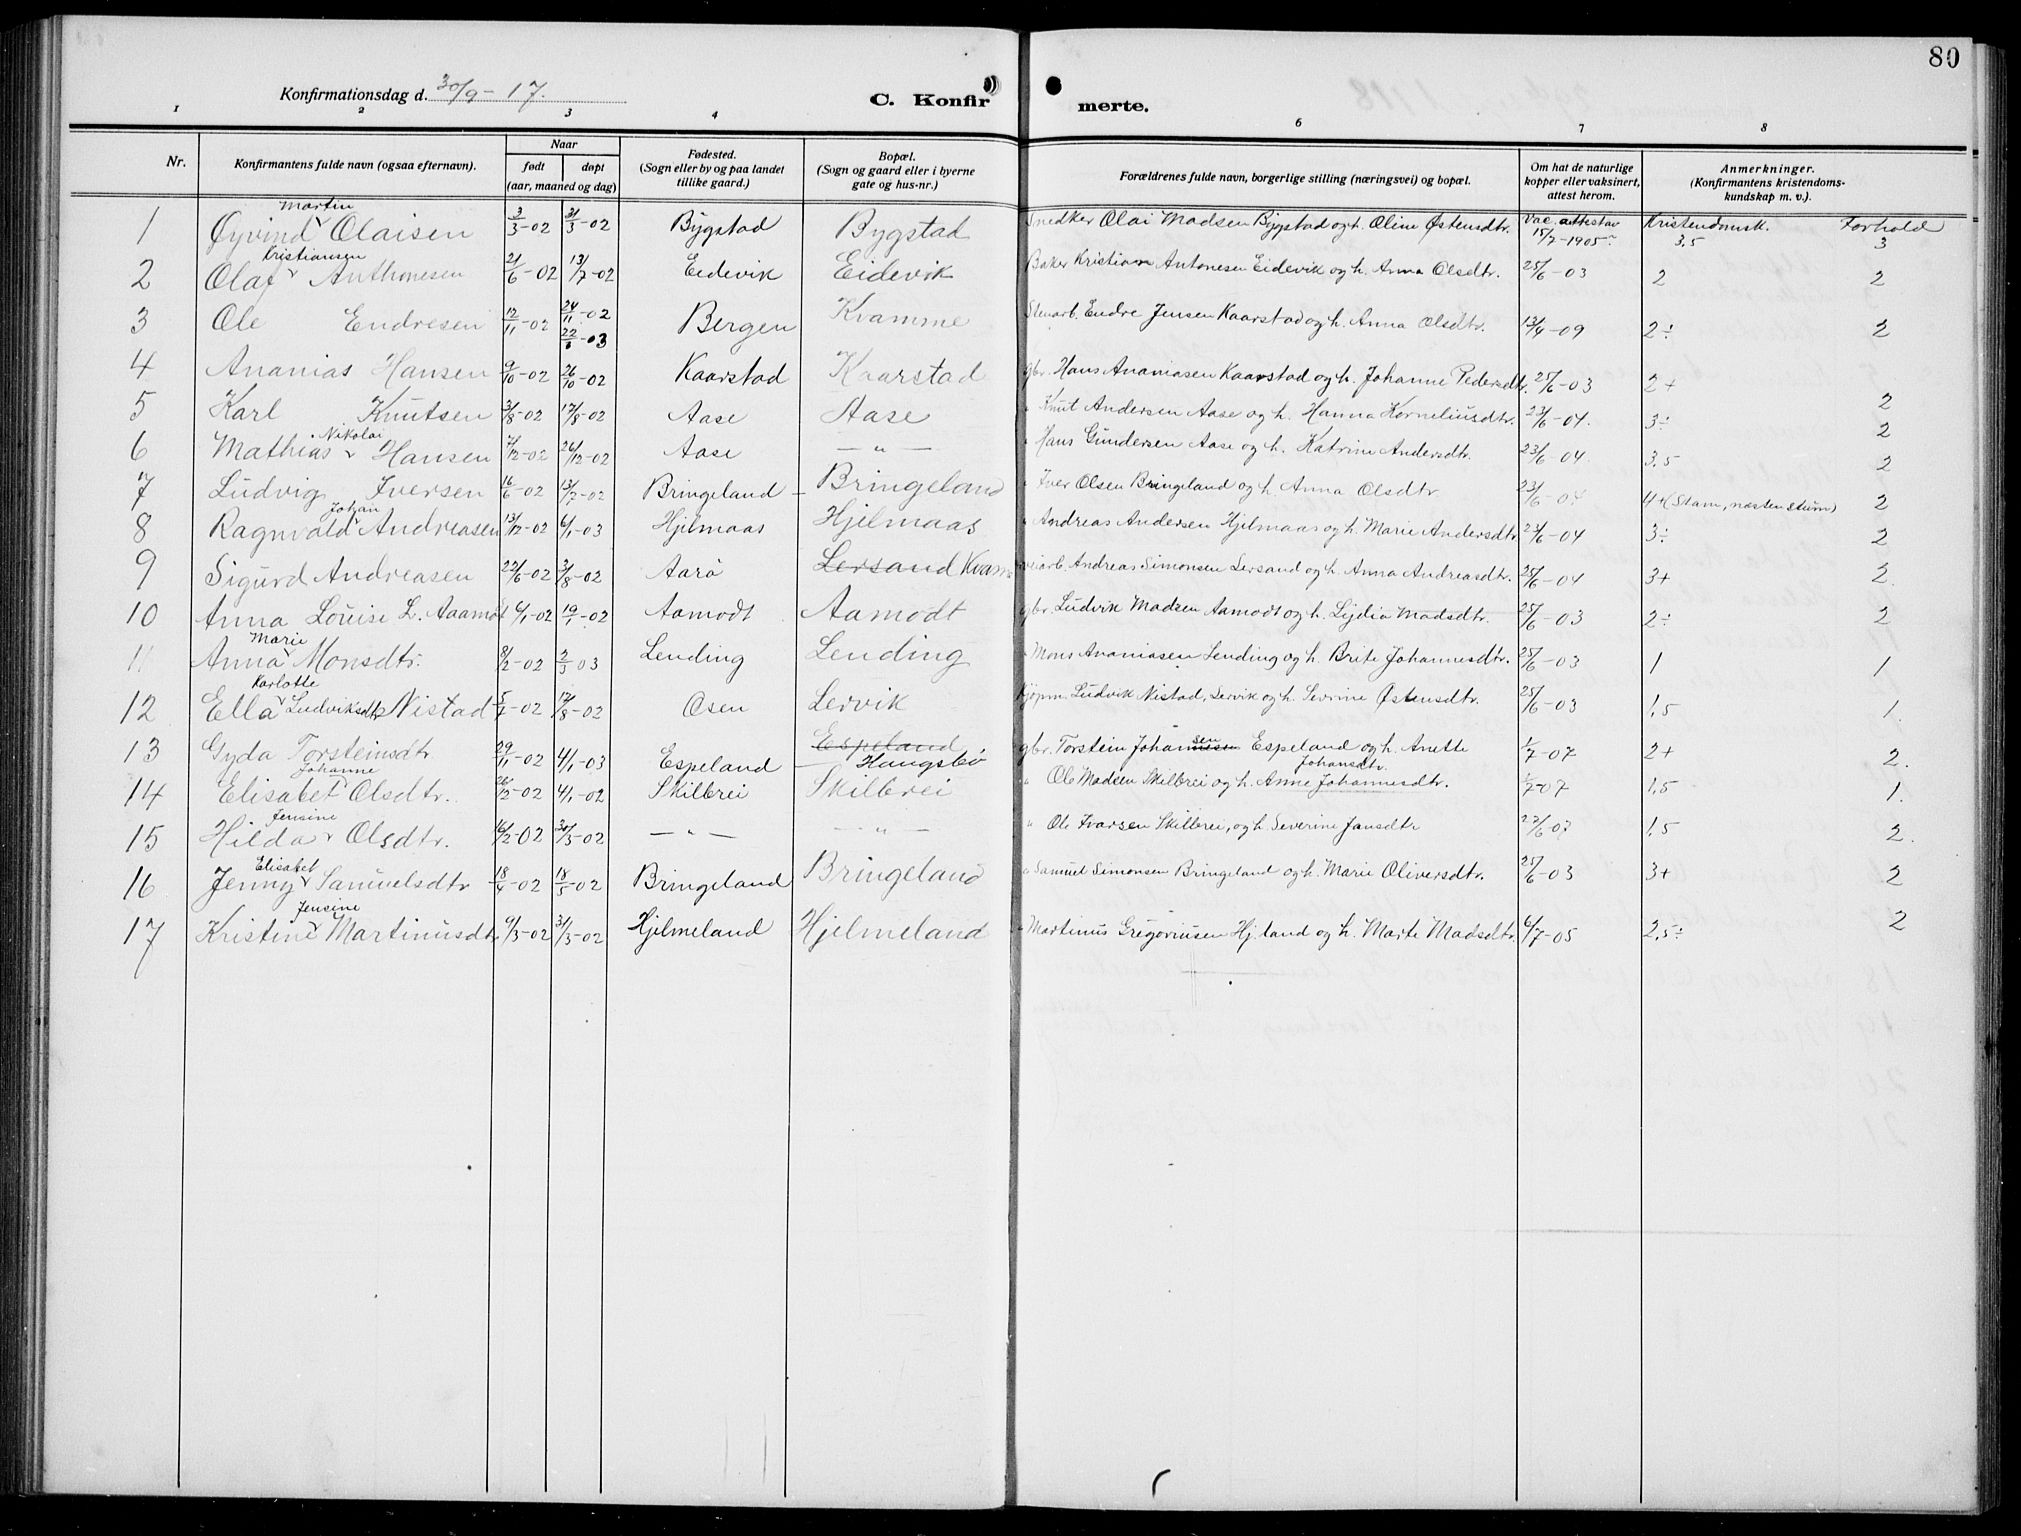 80
Konfirmationsdag d. 30/9 - 17.
C. Konfir merte.
1 2 3 4 6 7 8
Nr. Konfirmantens fulde navn (ogsaa efternavn). Naar født døpt (aar, maaned og dag) Fødested. (Sogn eller by og paa landet tillike gaard.) Bopæl. (Sogn og gaard eller i byerne gate og hus-nr.) Forældrenes fulde navn, borgerlige stilling (næringsvei) og bopæl. Om hat de naturlige kopper eller vaksinert, attest herom. Anmerkninger. (Konfirmantens kristendomskundskap m. v.).
Kristendomsk. Forhold
1 Øyvind Martin Olaisen 3/3-02 31/3-02 Bygstad Bygstad Snedker Olai Madsen Bygstad og h. Oline Østensdtr. Vac. attest av 15/7-1905 3,5 3
2 Olaf Kristiansen Anthonesen 21/6-02 13/7-02 Eidevik Eidevik Baker Kristian Antonesen Eidevik og h. Anna Olsdtr. 25/6-03 2 2
3 Ole Endresen 12/11-02 24/11-02 22/6-03 Bergen Kvamme Stenarb. Endre Jensen Kaarstad og h. Anna Olsdtr. 13/4-09 2÷ 2
4 Ananias Hansen 9/10-02 26/10-02 Kaarstad Kaarstad gbr. Hans Ananiasen Kaarstad og h. Johanne Pedersdtr. 25/6-03 2+ 2
5 Karl Knutsen 3/8-02 17/8-02 Aase Aase " Knut Andersen Aase og h. Hanna Korneliusdtr. 23/6-04. 3÷ 2
6 Mathias Nikolai Hansen 7/12-02 26/12-02 Aase - " - " Hans Gundersen Aase og h. Katrine Andersdtr. 23/6-04. 3,5 2
7 Ludvig Iversen 16/6-02 13/7-02 Bringeland - Bringeland " Iver Olsen Bringeland og h. Anna Olsdtr. 23/6-04 4+ (Stam, næsten stum) 2
8 Ragnvald Johan Andreasen 13/12-02 6/1-03 Hjelmaas Hjelmaas " Andreas Andersen Hjelmaas og h. Marie Andersdtr. 23/6-04 3÷ 2
9 Sigurd Andreasen 22/6-02 3/8-02 Aarø Lersand Kvam veiarb. Andreas Simonsen Lersand og h. Anna Andreasdtr. 25/6-04 3+ 2.
10 Anna Louise L. Aaamot 6/1-02 19/1-02 Aamodt Aamodt gbr. Ludvik Madsen Aamodt og h. Lydia Madsdtr. 25/6-03 2÷ 2
11 Anna Marie Monsdtr. 8/2-02 2/3 03 Lending Lending " Mons Ananiasen Lending og h. Brite Johannesdtr. 25/6-03 1 1
12 Ella Karlotte Ludviksdtr Nistad 5/7-02 17/8-02 Osen Lervik Kjøpm. Ludvik Nistad, Lervik og h. Sevrine Østensdtr. 25/6-03 1,5 1.
13 Gyda Torsteinsdtr 29/11-02 4/1-03 Espeland Espeland Haugsbø gbr. Torstein Johansen Espeland og h. Anette Johansdtr. 1/7-07 2+ 2.
14 Elisabet Johanne Olsdtr. 26/12-02 4/1-02 Skilbrei Skilbrei " Ole Madsen Skilbrei og h. Anne Johannesdtr. 1/7-07 1,5 1.
15 Hilda Jensine Olsdtr. 16/2-02 30/3-02 - " - - " - " Ole Ivarsen Skilbrei, og h. Severine Jansdtr 22/6-07 1,5 2.
16 Jenny Elisabet Samuelsdtr 18/4-02 18/5-02 Bringeland Bringeland " Samuel Simonsen Bringeland og h. Marie Oliversdtr. 25/6-03 3+ 2
17 Kristine Jensine Martinusdtr 9/3-02 31/3-02 Hjelmeland Hjelmeland " Martinus Gregoriusen Hj.land og h. Marte Madsdtr. 6/7-05 2,5÷ 2